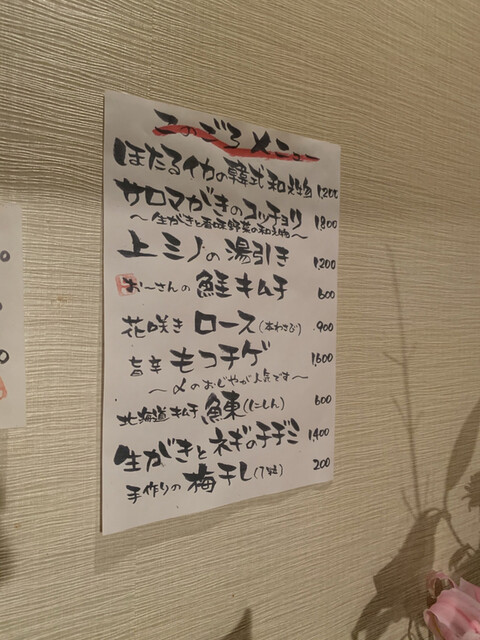 このごろメニュー
ほたるイカの韓式和え物 1,200
サロマがきのコッチョリ 1,800
～生がきと香味野菜の和え物～
上ミノの湯引き 1,200
お〜さんの 鮭キムチ 600
花咲き ロース(本わさび) 900
旨辛 もつチゲ 1,600
～〆のおじやが人気です～
北海道キムチ 鰊(にしん) 600
生がきとネギのチヂミ 1,400
手作りの 梅干し(1粒) 200